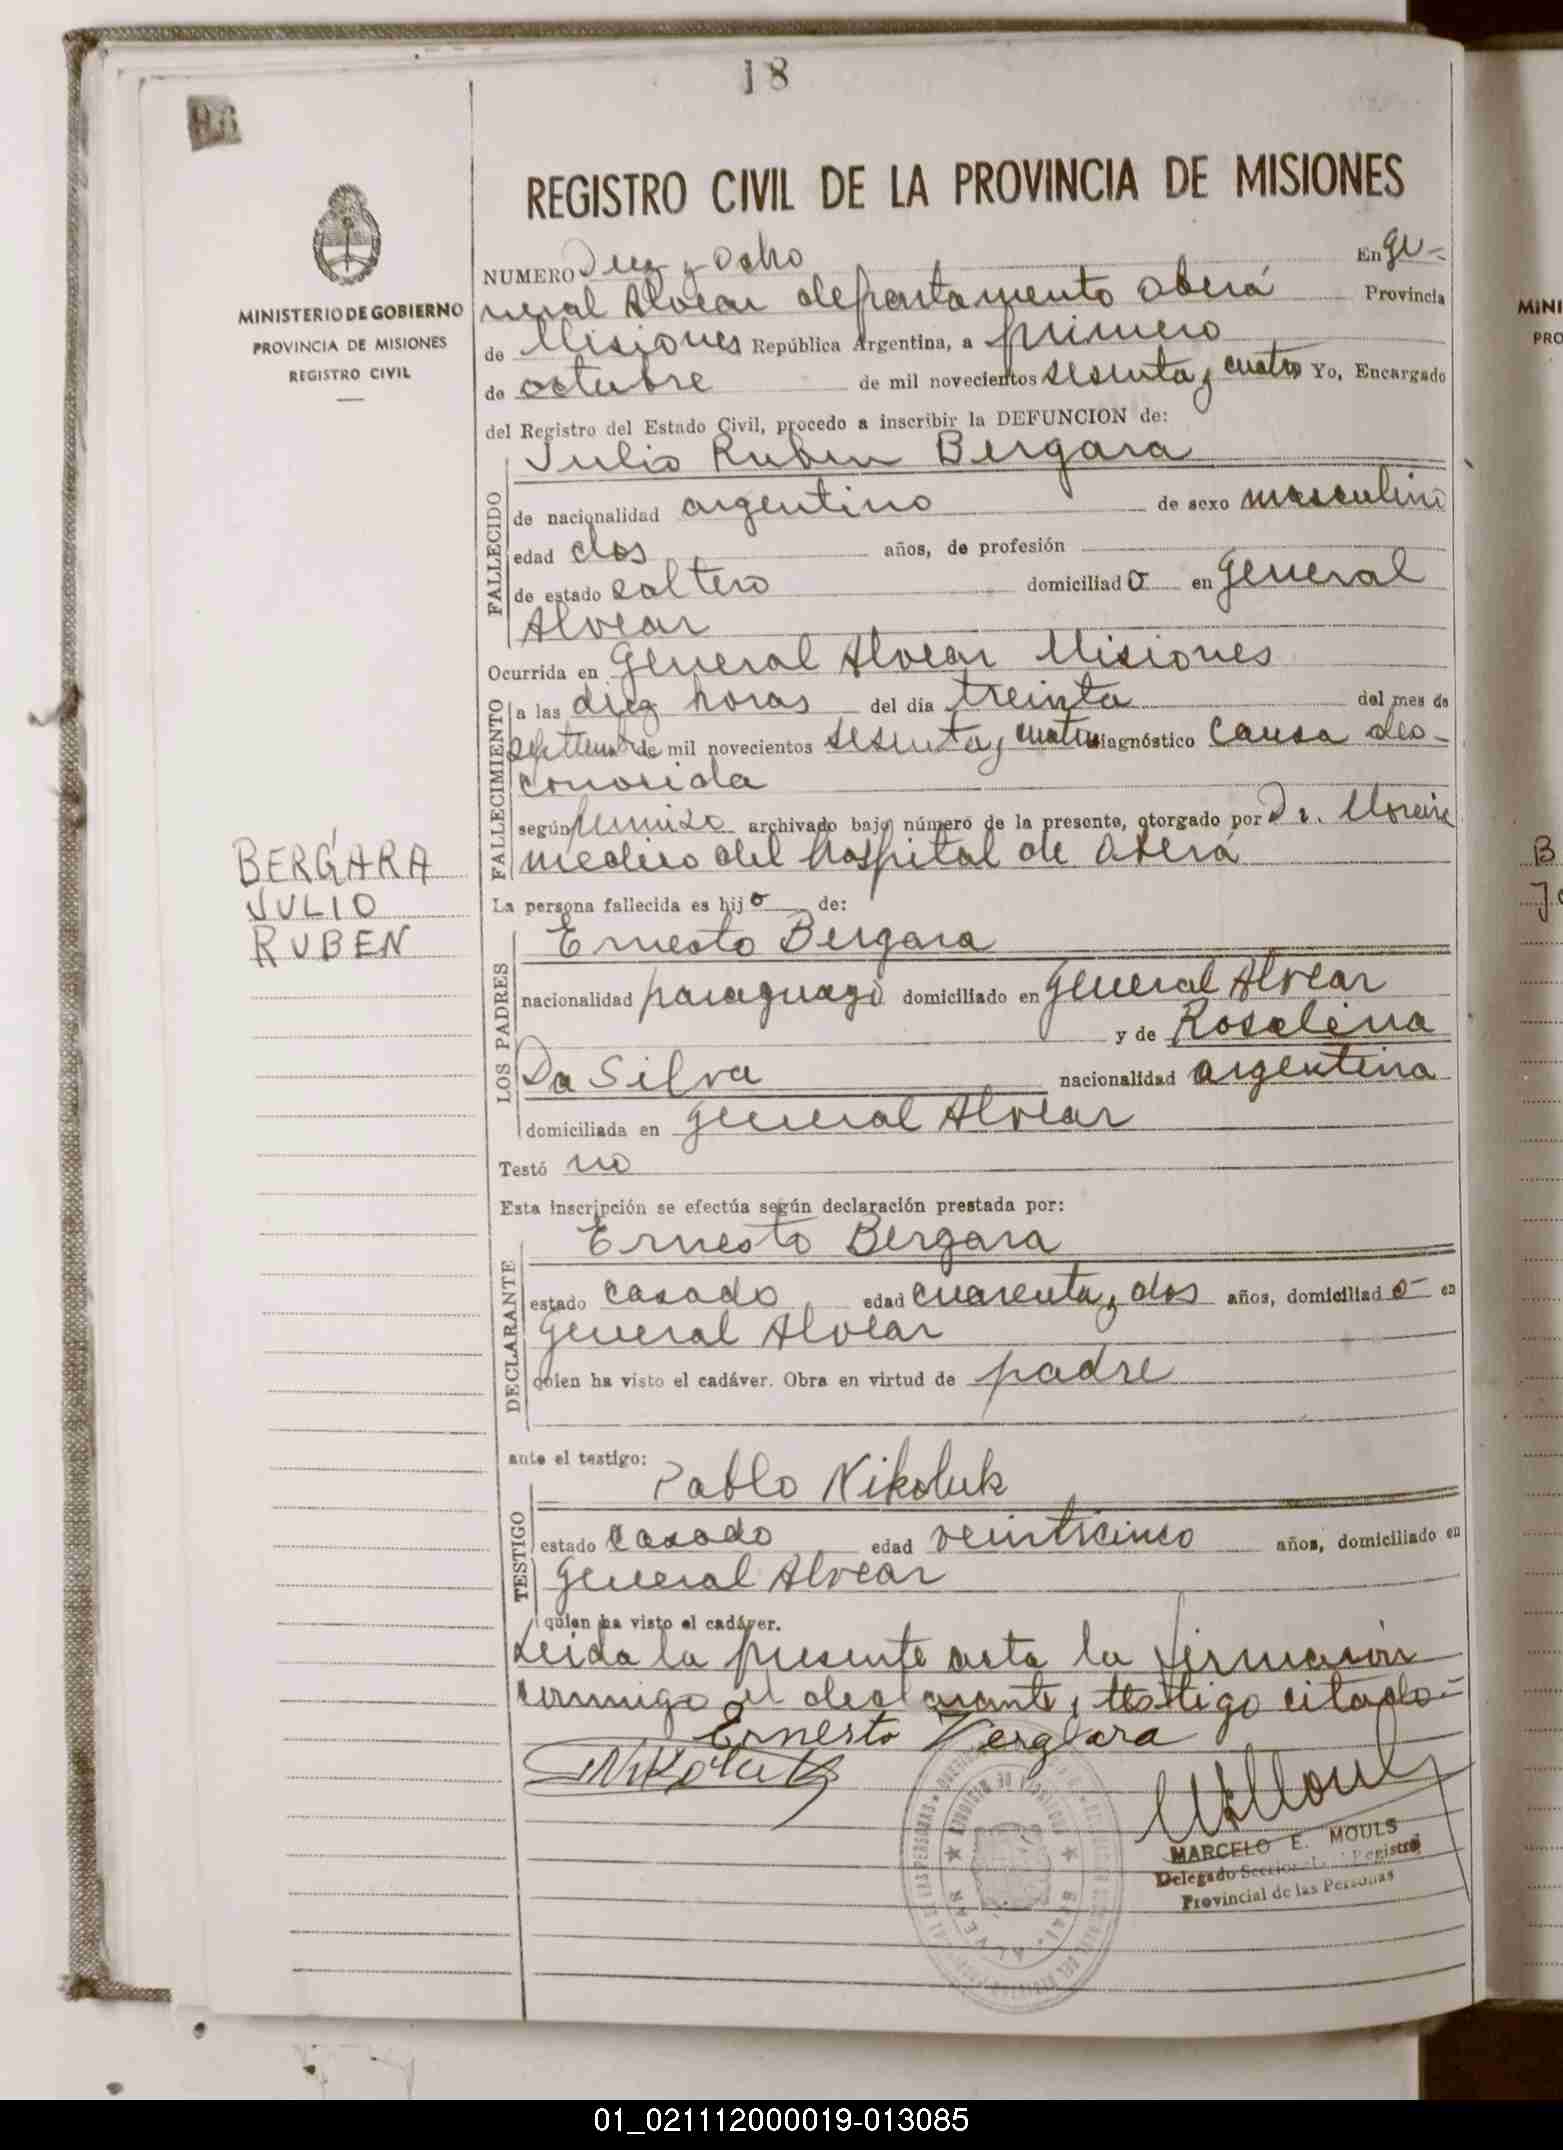 18
96
REGISTRO CIVIL DE LA PROVINCIA DE MISIONES
MINISTERIO DE GOBIERNO
PROVINCIA DE MISIONES
REGISTRO CIVIL
NUMERO Diez y Ocho En Ge-
neral Alvear departamento Oberá Provincia
de Misiones República Argentina, a primero
de octubre de mil novecientos sesenta y cuatro Yo, Encargado
del Registro del Estado Civil, procedo a inscribir la DEFUNCION de:
Julio Ruben Bergara
FALLECIDO
de nacionalidad argentino de sexo masculino
edad dos años, de profesión
de estado soltero domiciliado en General
Alvear
Ocurrida en General Alvear Misiones
FALLECIMIENTO
a las diez horas del día treinta del mes de
septiembre de mil novecientos sesenta y cuatro diagnóstico Causa des-
conocida
según permiso archivado bajo número de la presente, otorgado por Dr. Moreira
medico del hospital de Oberá
BERGARA
JULIO
RUBEN
La persona fallecida es hijo de:
LOS PADRES
Ernesto Bergara
nacionalidad paraguayo domiciliado en General Alvear
y de Roselina
Da Silva nacionalidad argentina
domiciliada en General Alvear
Testó no
Esta inscripción se efectúa según declaración prestada por:
DECLARANTE
Ernesto Bergara
estado casado edad cuarenta y dos años, domiciliado en
General Alvear
quien ha visto el cadáver. Obra en virtud de padre
ante el testigo:
TESTIGO
Pablo Nikoluk
estado casado edad veinticinco años, domiciliado en
General Alvear
quien ha visto el cadáver.
Leida la presente acta la firmaron
conmigo el declarante y testigo citado=
Ernesto Vergara
Nikoluk
MARCELO E. MOULS
Delegado Seccional del Registro
Provincial de las Personas
GRAL. ALVEAR
MINI
PRO
B
01_021112000019-013085